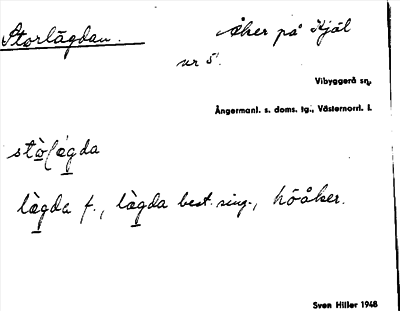 Storlägdan. Åker på Kjäl
nr 5.
Vibyggerå sn,
Ångermanl. s. doms. tg., Västernorrl. l.
stò(lǽgda
læ̀gda f., læ̀gda best. sing., höåker.
Sven Hiller 1948